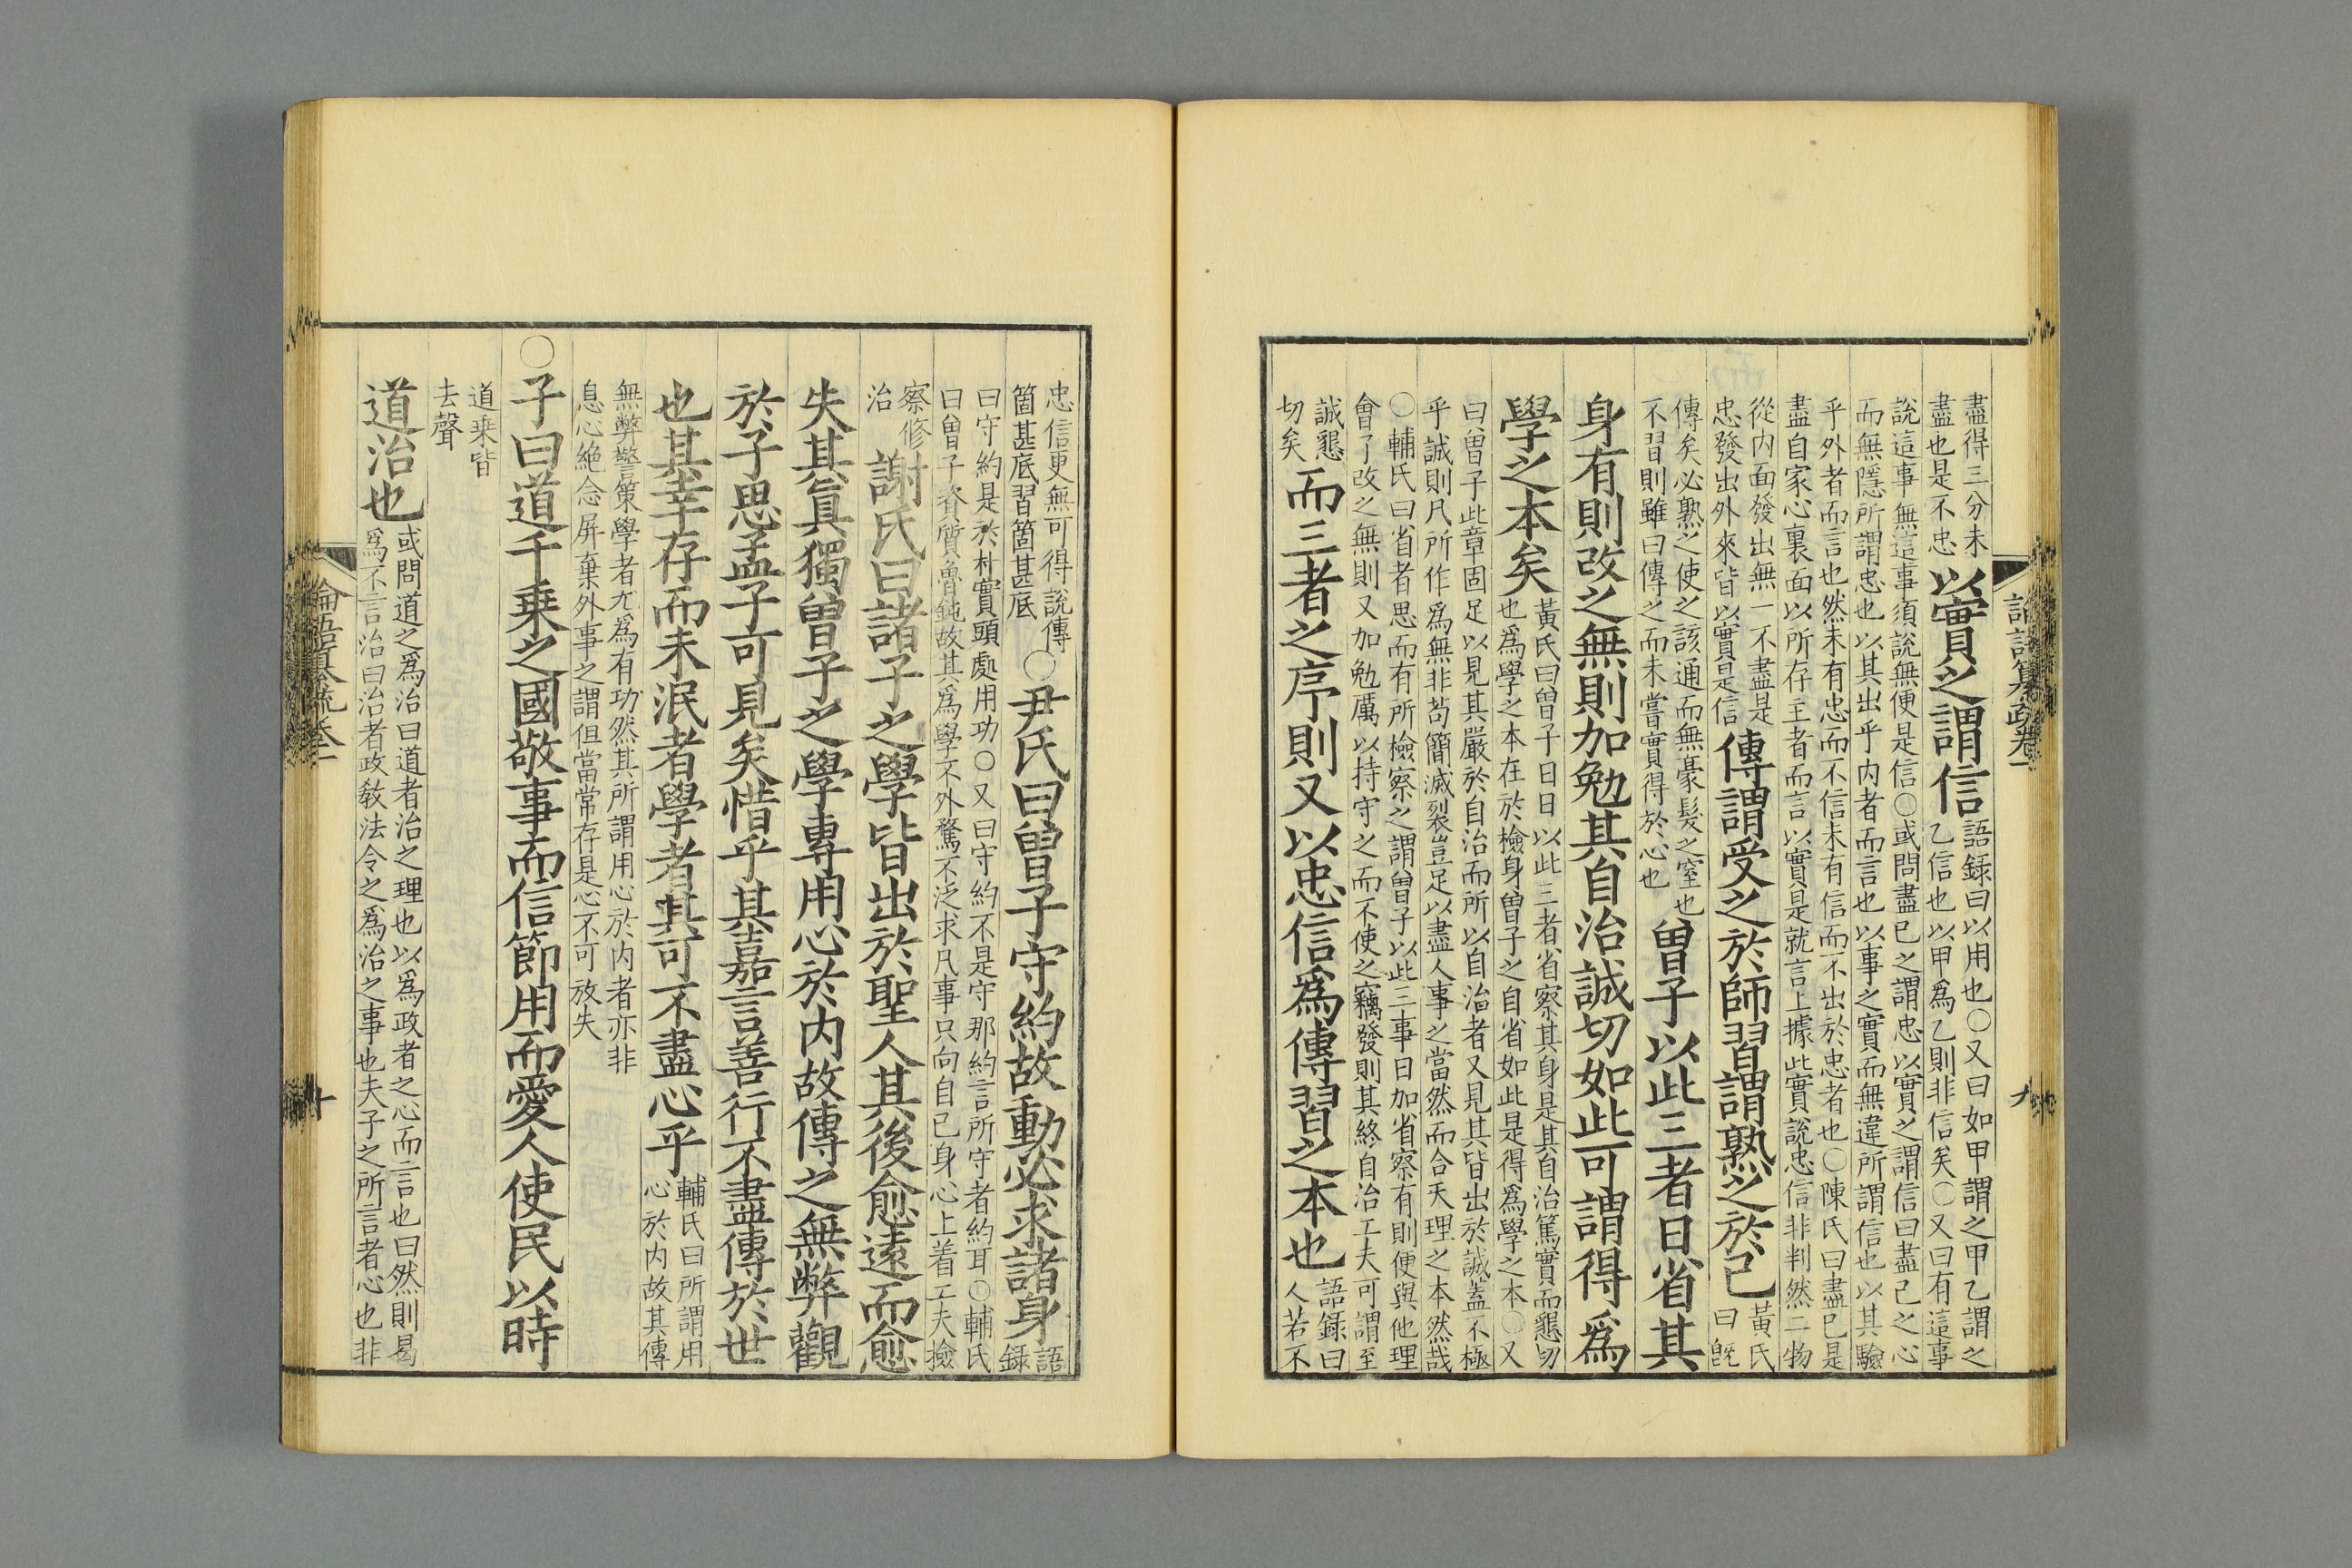 盡得三分未盡也是不忠以實之謂信語録曰以用也〇又曰如甲謂之甲乙謂之乙信也以甲爲乙則非信矣〇又曰有這事
說這事無這事須說無便是信〇或問盡己之謂忠以實之謂信曰盡己之心
而無隱所謂忠也以其出乎内者而言也以事之實而無違所謂信也以其驗
乎外者而言也然未有忠而不信未有信而不出於忠者也〇陳氏曰盡己是
盡自家心裏面以所存主者而言以實是就言上據此實說忠信非判然二物
從内面發出無一不盡是忠發出外來皆以實是信傳謂受之於師習謂熟之於己黃氏曰既
傳矣必熟之使之該通而無豪髮之窒也不習則雖曰傳之而未嘗實得於心也曾子以此三者日省其
身有則改之無則加勉其自治誠切如此可謂得爲
學之本矣黃氏曰曾子日日以此三者省察其身是其自治篤實而懇切也爲學之本在於檢身曾子之自省如此是得爲學之本〇又
曰曾子此章固足以見其嚴於自治而所以自治者又見其皆出於誠蓋不極
乎誠則凡所作爲無非苟簡滅裂豈足以盡人事之當然而合天理之本然哉
〇輔氏曰省者思而有所檢察之謂曾子以此三事日加省察有則便與他理
會了改之無則又加勉厲以持守之而不使之竊發則其終自治工夫可謂至
誠懇切矣而三者之序則又以忠信爲傳習之本也語録曰人若不
忠信更無可得說傳箇甚底習箇甚底〇尹氏曰曾子守約故動必求諸身語録
曰守約是於朴實頭處用功〇又曰守約不是守那約言所守者約耳〇輔氏
曰曾子資質魯鈍故其爲學不外騖不泛求凡事只向自己身心上着工夫撿
察修治謝氏曰諸子之學皆出於聖人其後愈遠而愈
失其眞獨曾子之學專用心於内故傳之無弊觀
於子思孟子可見矣惜乎其嘉言善行不盡傳於世
也其幸存而未泯者學者其可不盡心乎輔氏曰所謂用心於内故其傳
無弊警策學者尤爲有功然其所謂用心於内者亦非
息心絶念屏棄外事之謂但當常存是心不可放失
〇子曰道千乗之國敬事而信節用而愛人使民以時
道乗皆去聲
道治也或問道之爲治曰道者治之理也以爲政者之心而言也曰然則曷爲不言治曰治者政敎法令之爲治之事也夫子之所言者心也非